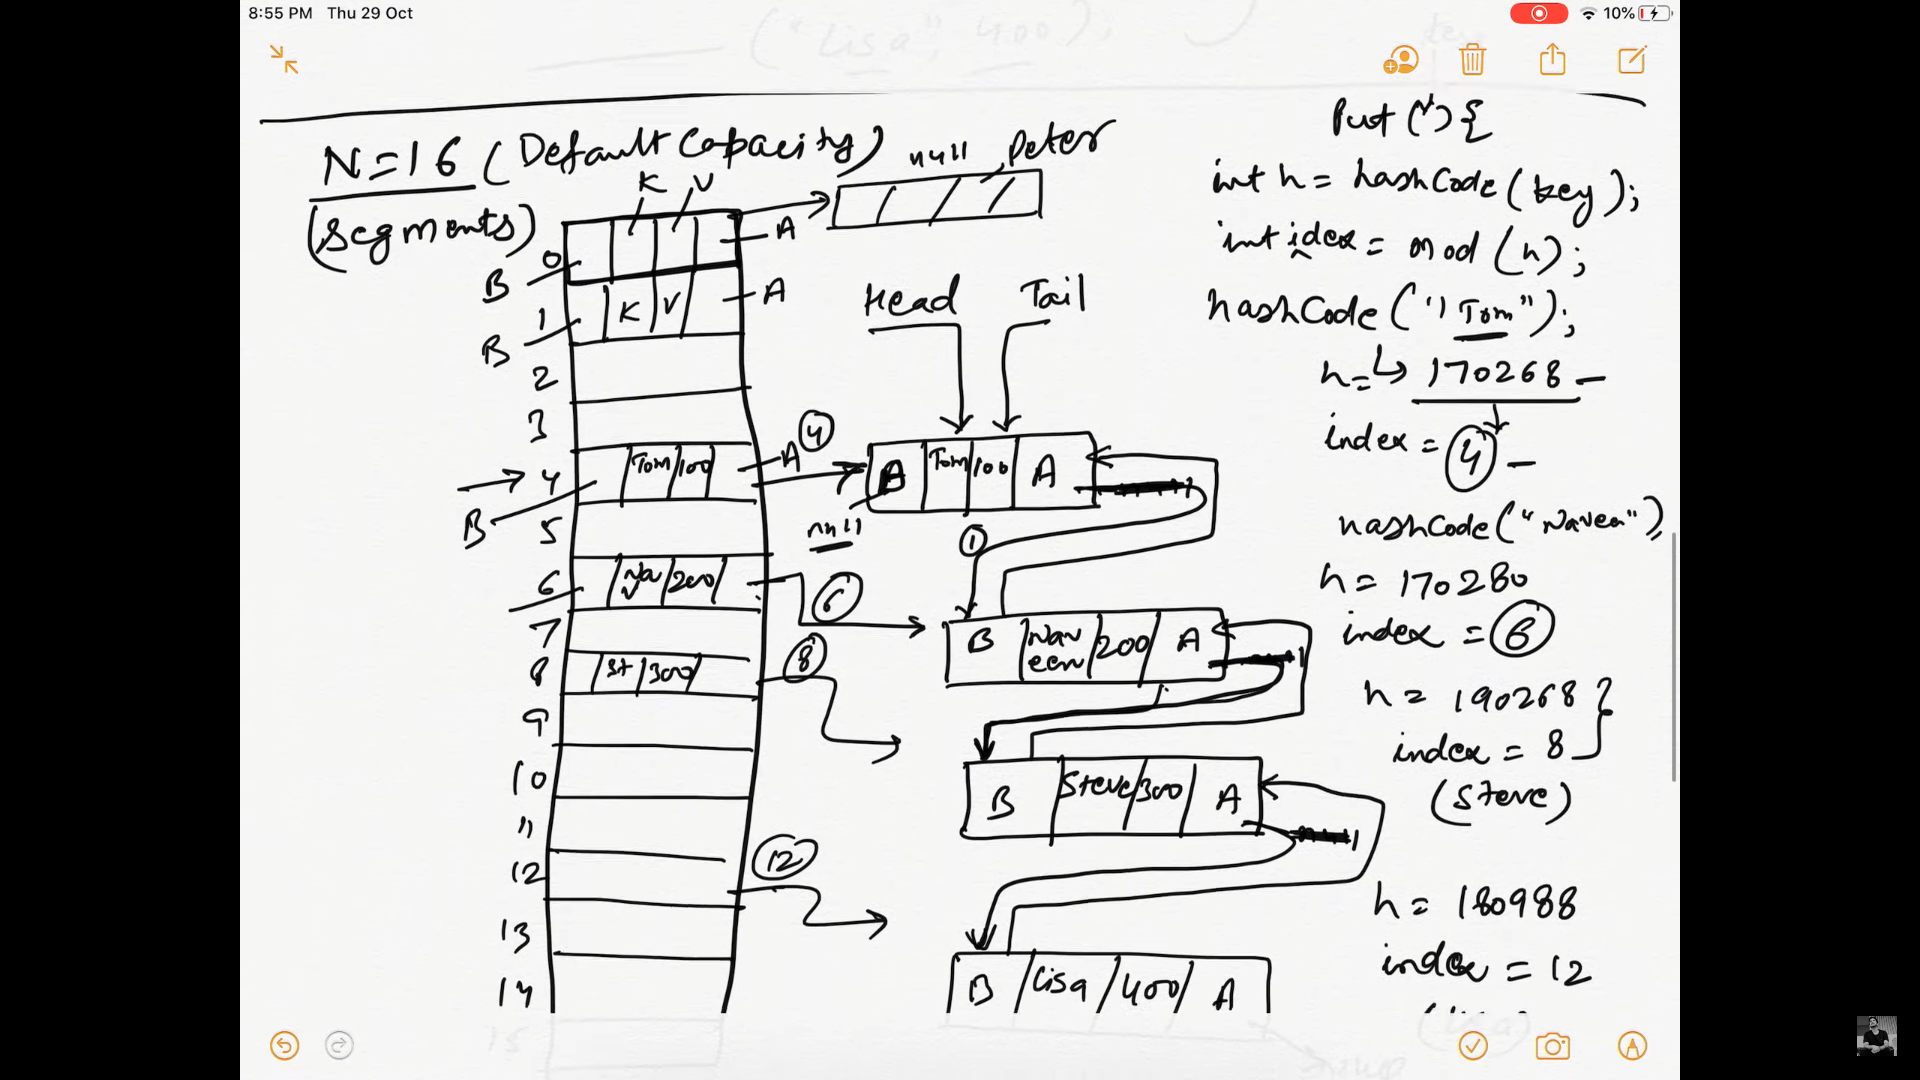 8:55 PM Thu 29 Oct
10%
("Lisa", 400);
N=16 (Default Capacity)
(Segments)
null, Peter
K V
0 A
B
1 K V A
B
2
3
4 Tom 100 A 4
B
5
6 Nav 200 6
7
8 St 300 8
9
10
11
12 12
13
14
15
Head Tail
Tom 100 A
null
1
B Naveen 200 A
B Steve 300 A
B Lisa 400 A
Put( ) {
int h = hashCode(key);
int idex = mod (h);
hashCode("Tom");
h= 170268
index = 4
hashCode("Naveen")
h = 170280
index = 6
h = 190268
index = 8
(Steve)
h = 180988
index = 12